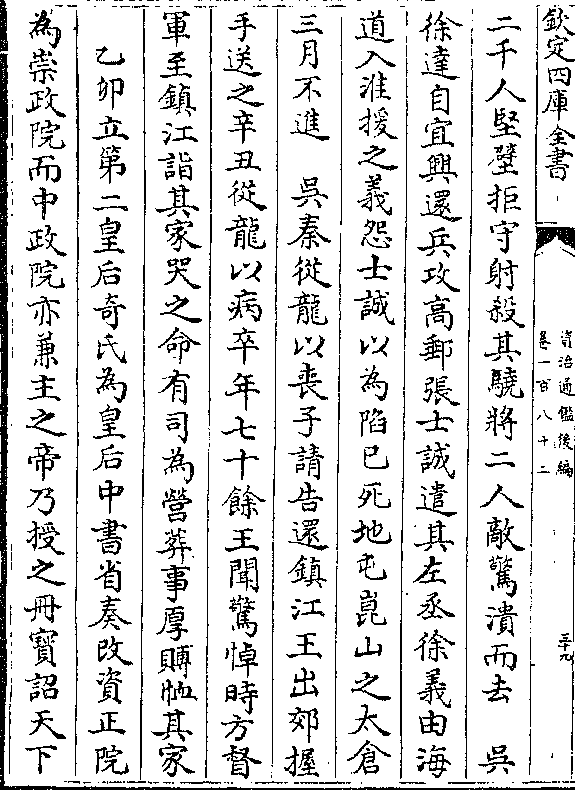 欽定四庫全書
資治通鑑後編
卷一百八十二
三十九
二千人堅壁拒守射殺其驍將二人敵驚潰而去　吳
徐達自宜興還兵攻高郵張士誠遣其左丞徐義由海
道入淮援之義怨士誠以為陷已死地屯崑山之太倉
三月不進　吳秦從龍以喪子請告還鎮江王出郊握
手送之辛丑從龍以病卒年七十餘王聞驚悼時方督
軍至鎮江詣其家哭之命有司為營葬事厚賻恤其家
乙卯立第二皇后奇氏為皇后中書省奏改資正院
為崇政院而中政院亦兼主之帝乃授之冊寶詔天下